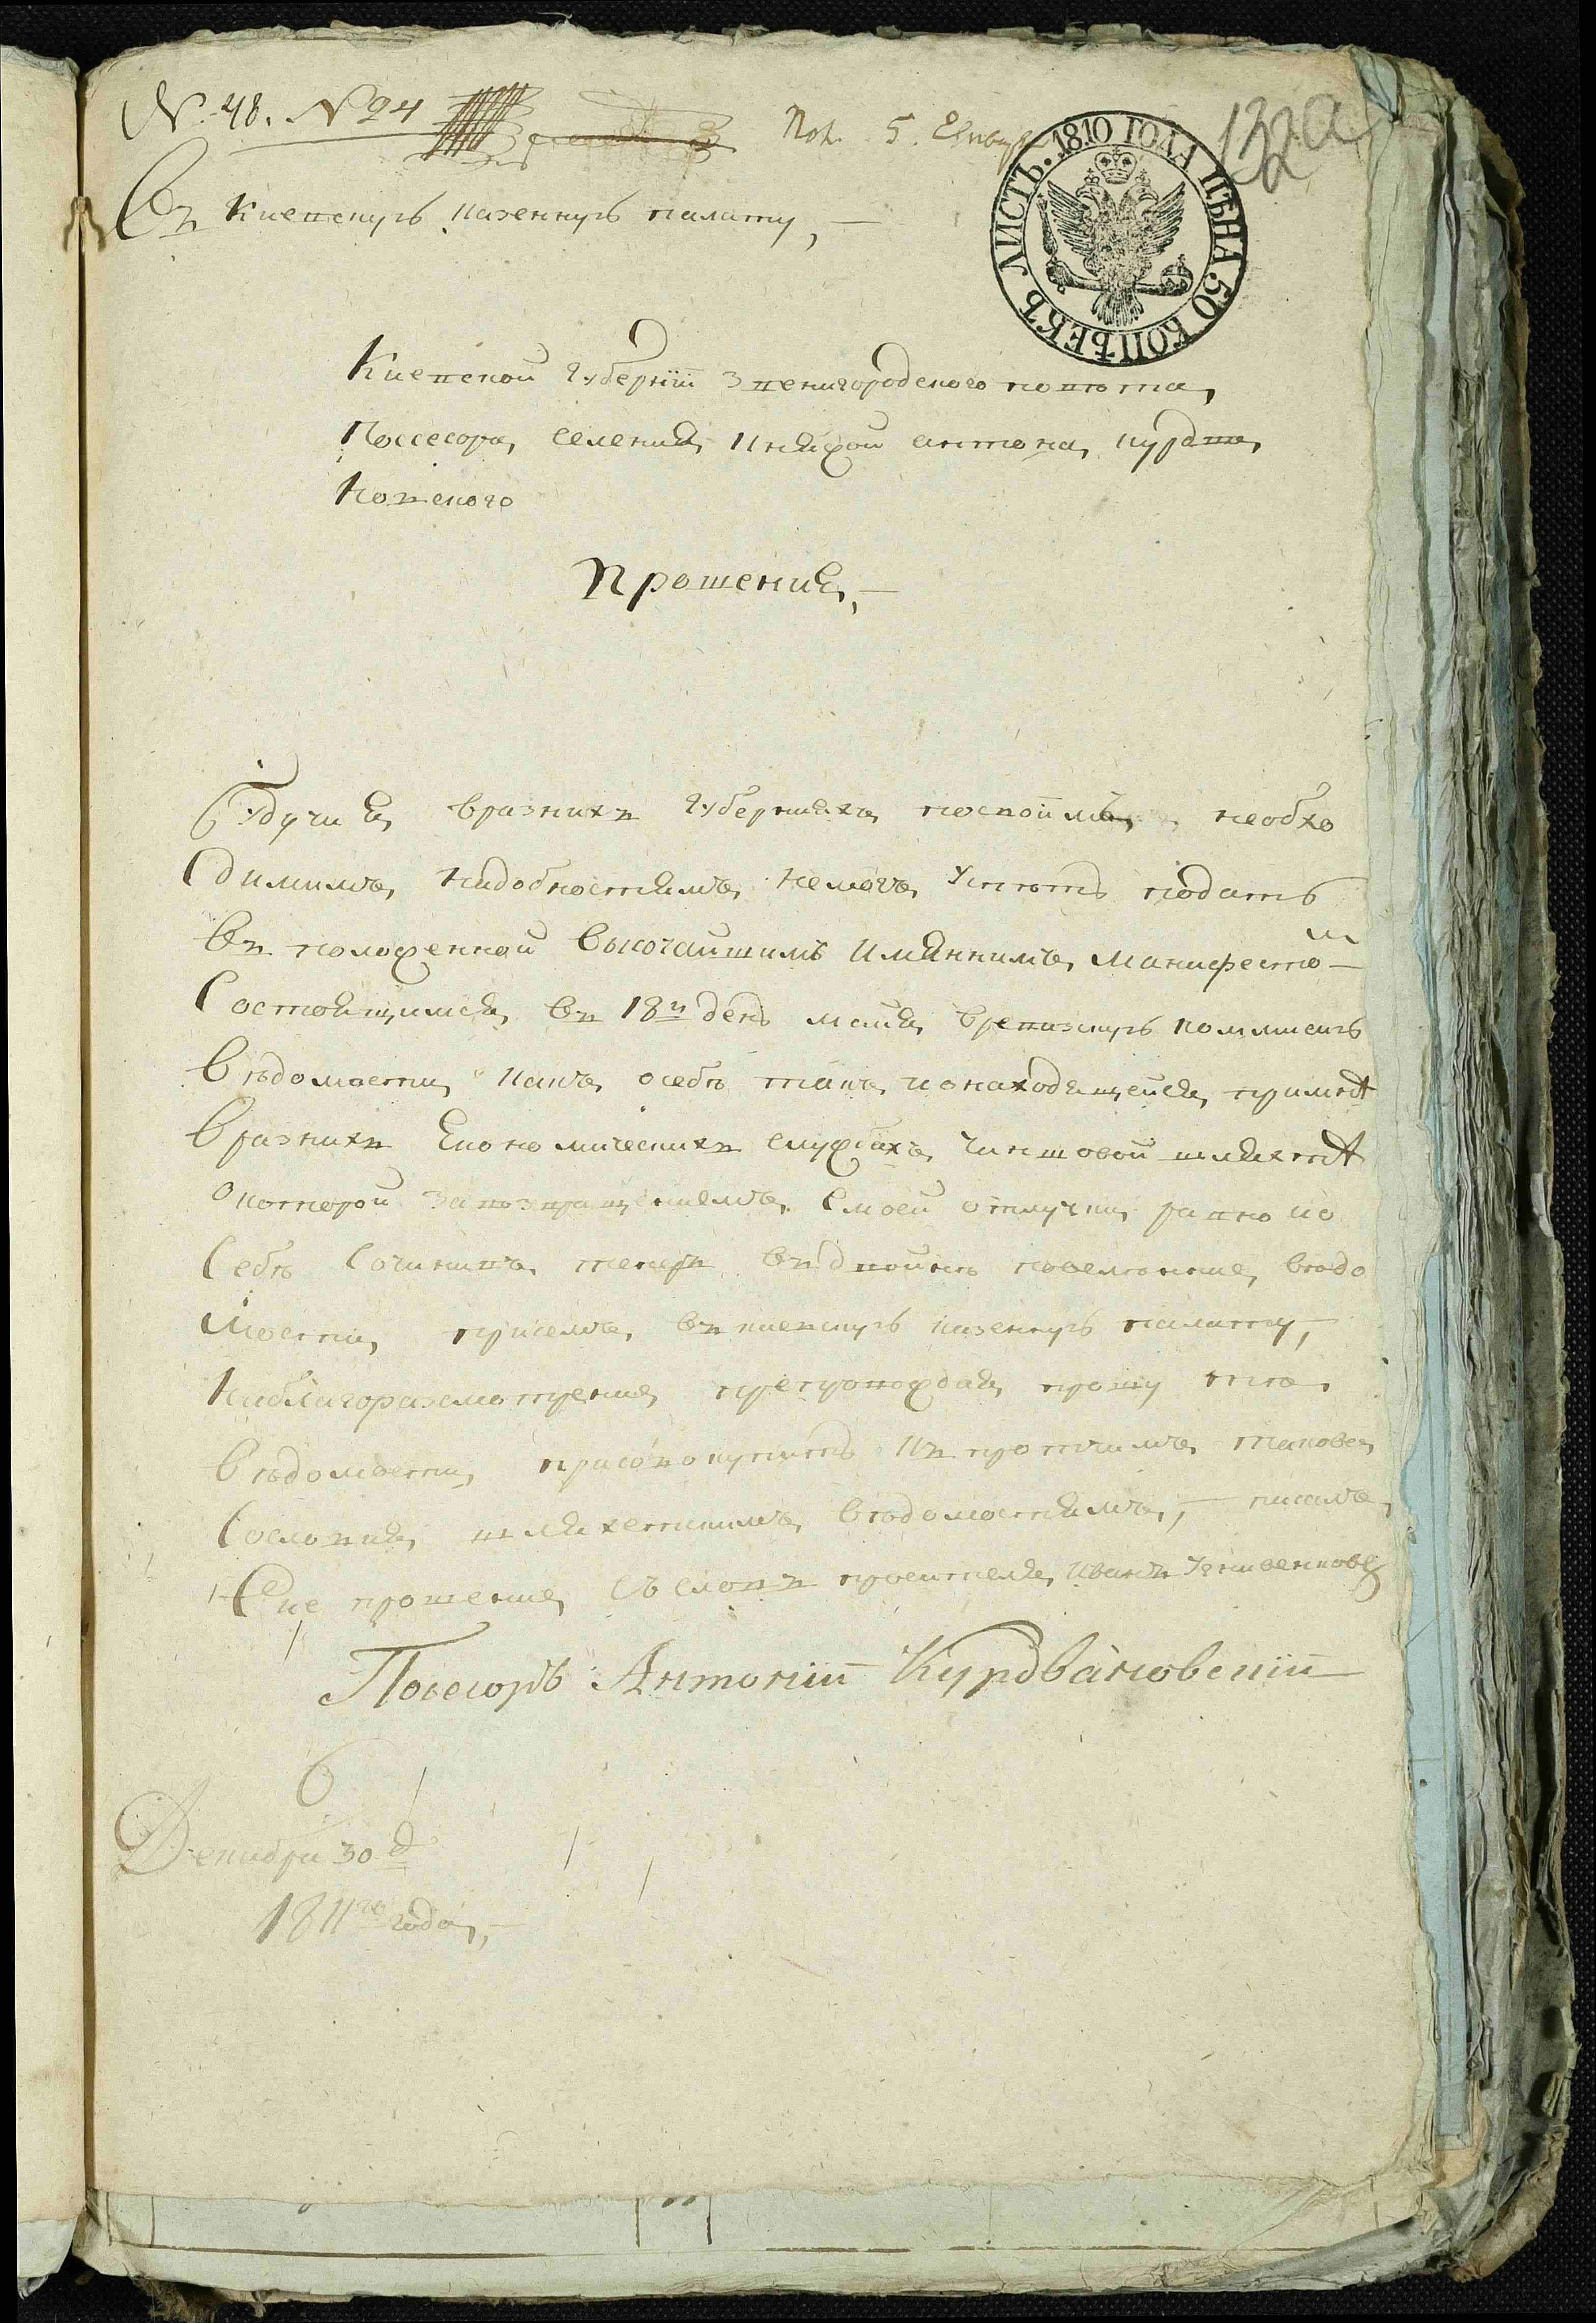 N. 48. N 24
Пол. 5. Енвар
132а
ЛИСТЪ. 1810 ГОДА ЦѢНА 50 КОПѢЕКЪ
Въ киевскую казенную палату,—
Киевской губернии Звенигородского повѣта,
Поссесора, селения, Княжой антона, курдва,
новского
Прошения,—
Будучи я, вразнихъ губерниахъ посвоимъ, необхо
димимъ, надобностямъ, немогъ, успѣть подать
Въ положенной высочайшимъ имяннимъ, манифестом
Состоящимся, въ 18й день майя, вревизскую коммисию
Вѣдомости, какъ, осебѣ такъ, ионаходящейся, примнѣ
Вразнихъ економическихъ службахъ, чиншовой шляхтѣ
окоторой завозвращениемъ, смоей отлучки, равно ио
Себѣ Сочинивъ, теперь, въдвойнѣ повеленние, вѣдо
мости, присемъ, въ киевскую казенную палату,
Наблагоразсмотрение, препровождая, прошу тѣ,
Вѣдомости, присовокупить къ протчимъ, таковоя,
Сословия, шляхетскимъ, вѣдомостямъ,,— писалъ,
Сие прошение, съ словъ просителя, Иванъ
Посесоръ Антоний Курдвановский
Декабря 30 д
1811го года,,—